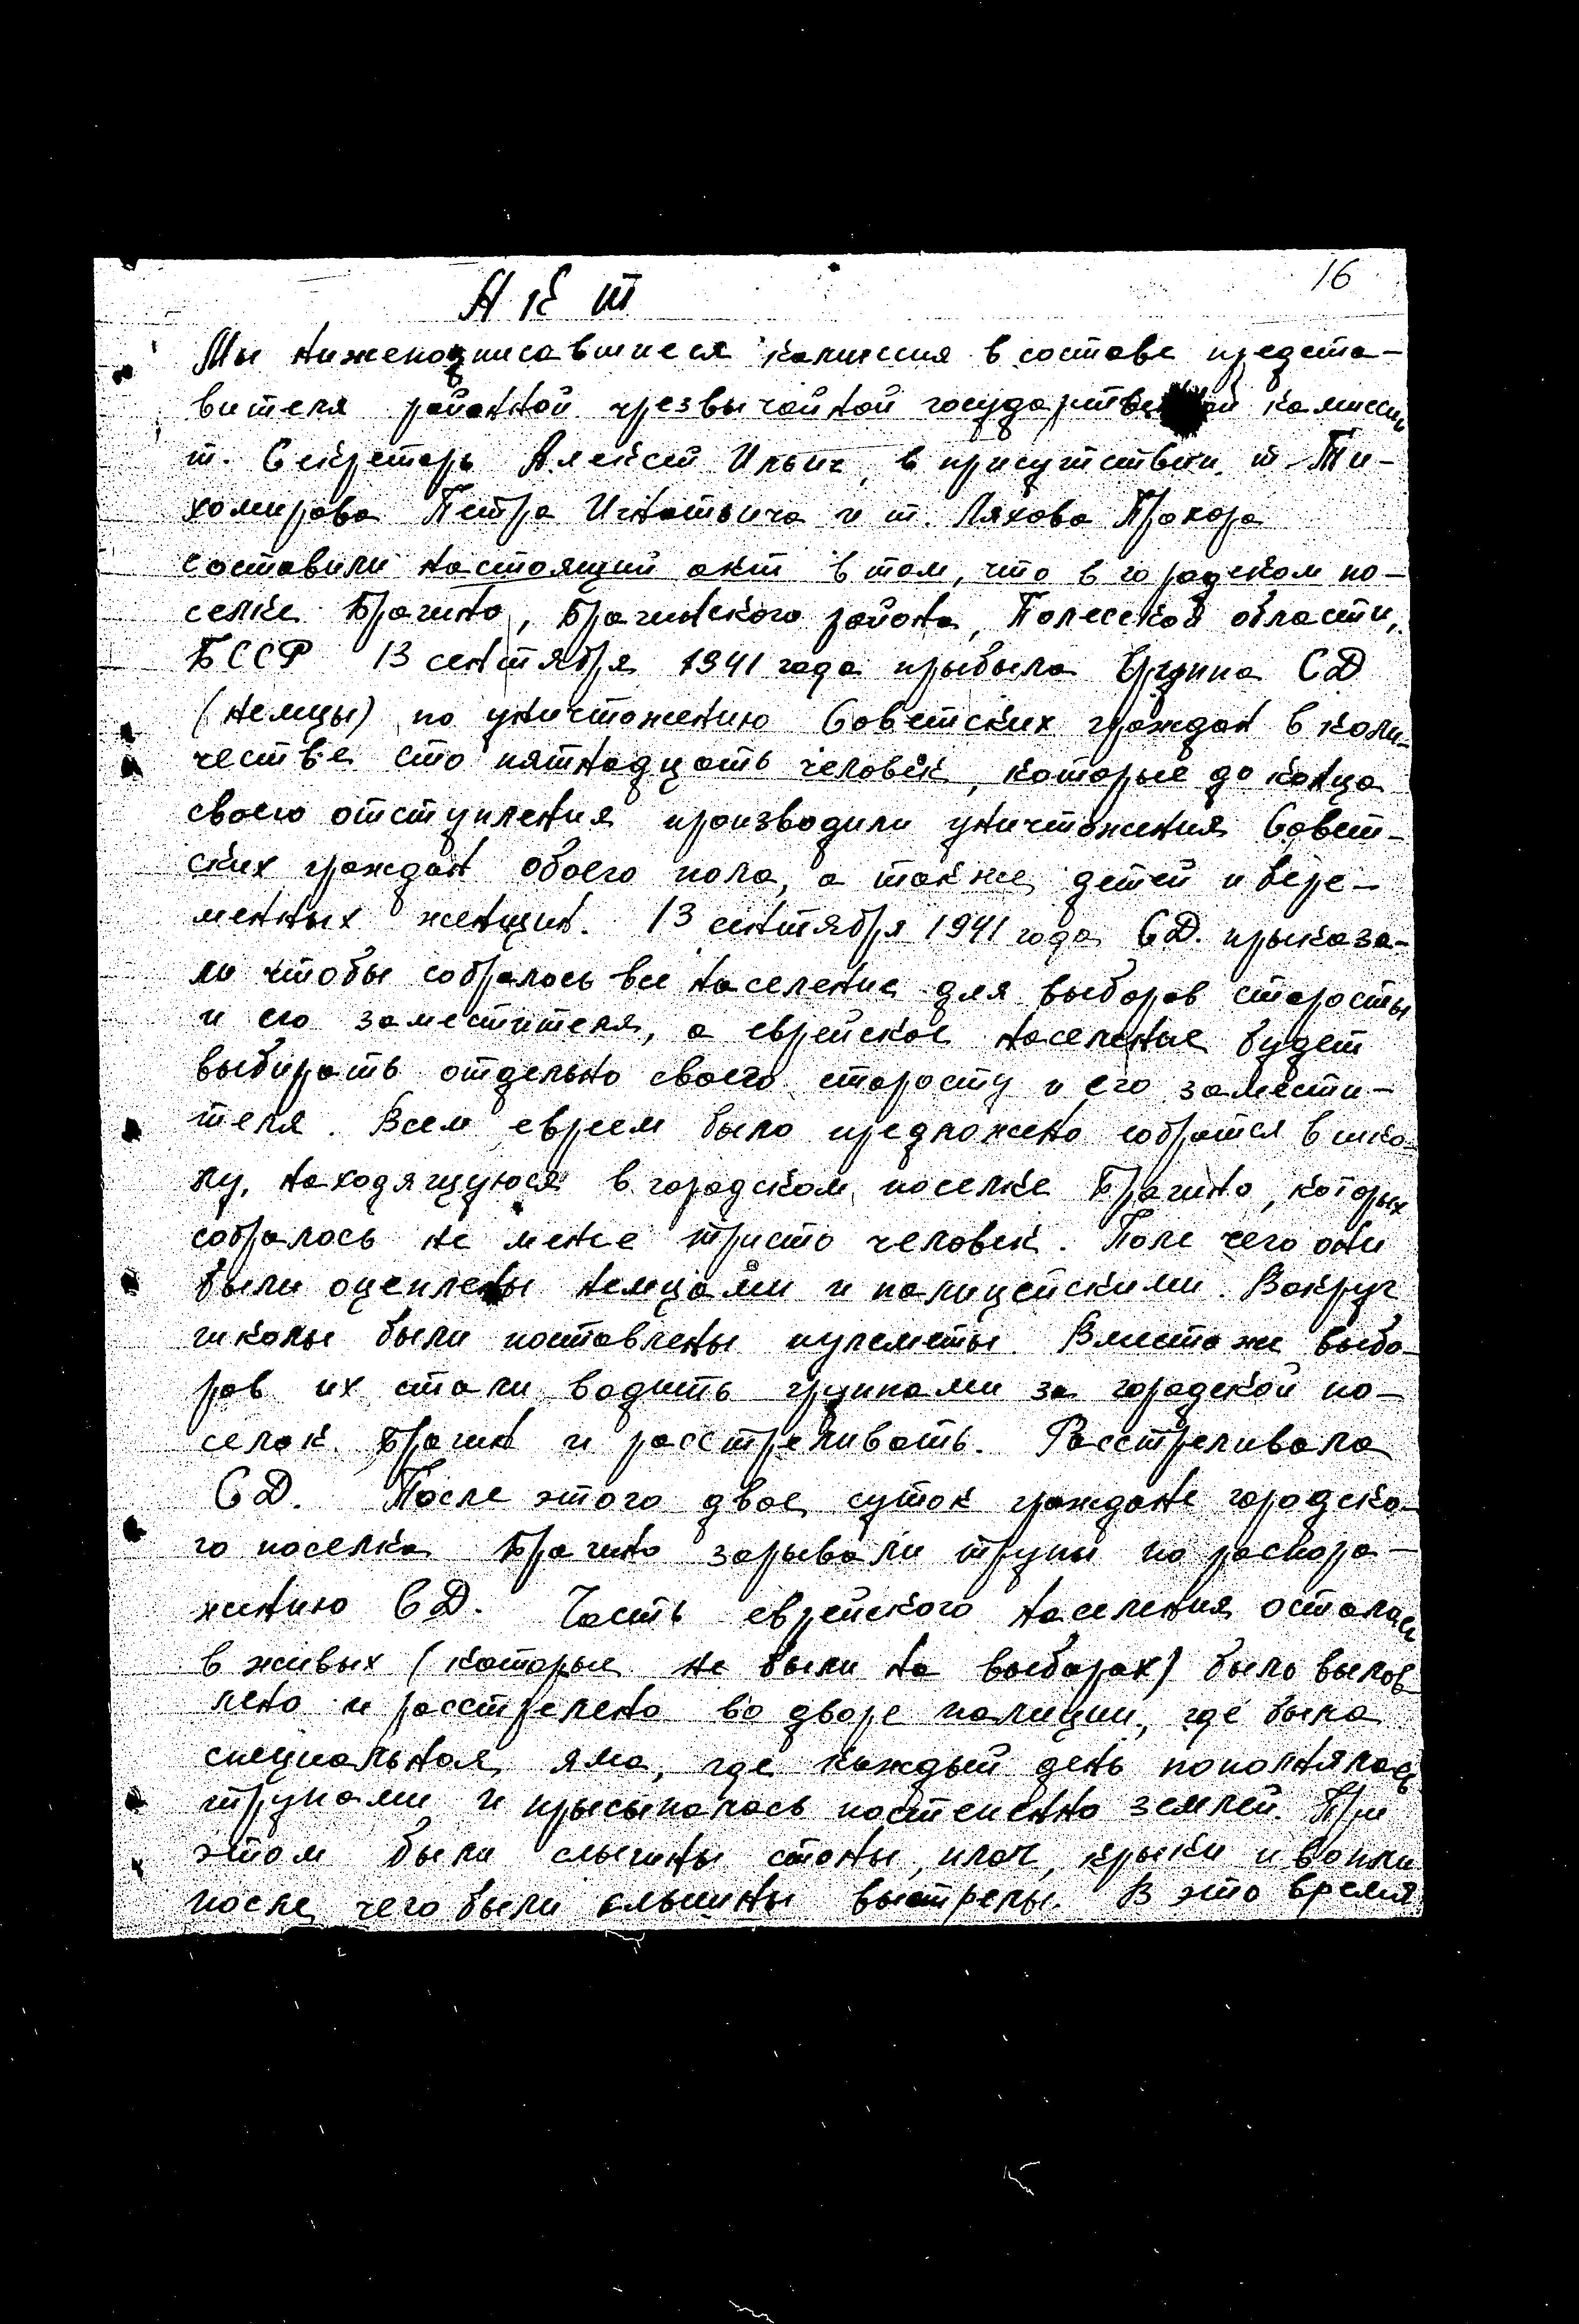 16
Акт
Мы нижеподписавшиеся комиссия в составе предста-
вителя районной чрезвычайной государственной комиссии
т. Секретарь Алексей Ильич, в присутствии т. Ти-
хомирова Петра Игнатьича и т. Ляхова Прохора
составили настоящий акт в том, что в городском по-
селке Брагино, Брагинского района, Полесской области,
БССР 13 сентября 1941 года прыбыла Группа СД
(немцы) по уничтожению Советских граждан в коли-
честве сто пятнадцать человек, которые до конца
своего отступления производили уничтожения Совет-
ских граждан обоего пола, а также детей и бере-
менных женщин. 13 сентября 1941 года СД. прыказа-
ли чтобы собралось все население для выборов старосты
и его заместителя, а еврейское население будет
выбирать отдельно своего старосту и его замести-
теля. Всем евреем было предложено собратся в шко-
лу, находящуюся в городском поселке Брагино, которых
собралось не менее тристо человек. Поле чего они
были оцеплены немцами и полицейскими. Вокруг
школы были поставлены пулеметы. Вместо же выбо-
ров их стали водить группами за городской по-
селок Брагин и расстреливать. Расстреливала
СД. После этого двое суток граждане городско-
го поселка Брагино зарывали трупы по распоря-
жению СД. Часть еврейского населения осталась
в живых (которые не были на выборах) было вылов-
лено и расстрелено во дворе полиции, где была
специальная яма, где каждый день пополнялась
трупами и прысыпалась постепенно землей. При
этом были слышны стоны, плач, крыки и вопли
после чего были слышны выстрелы. В это время